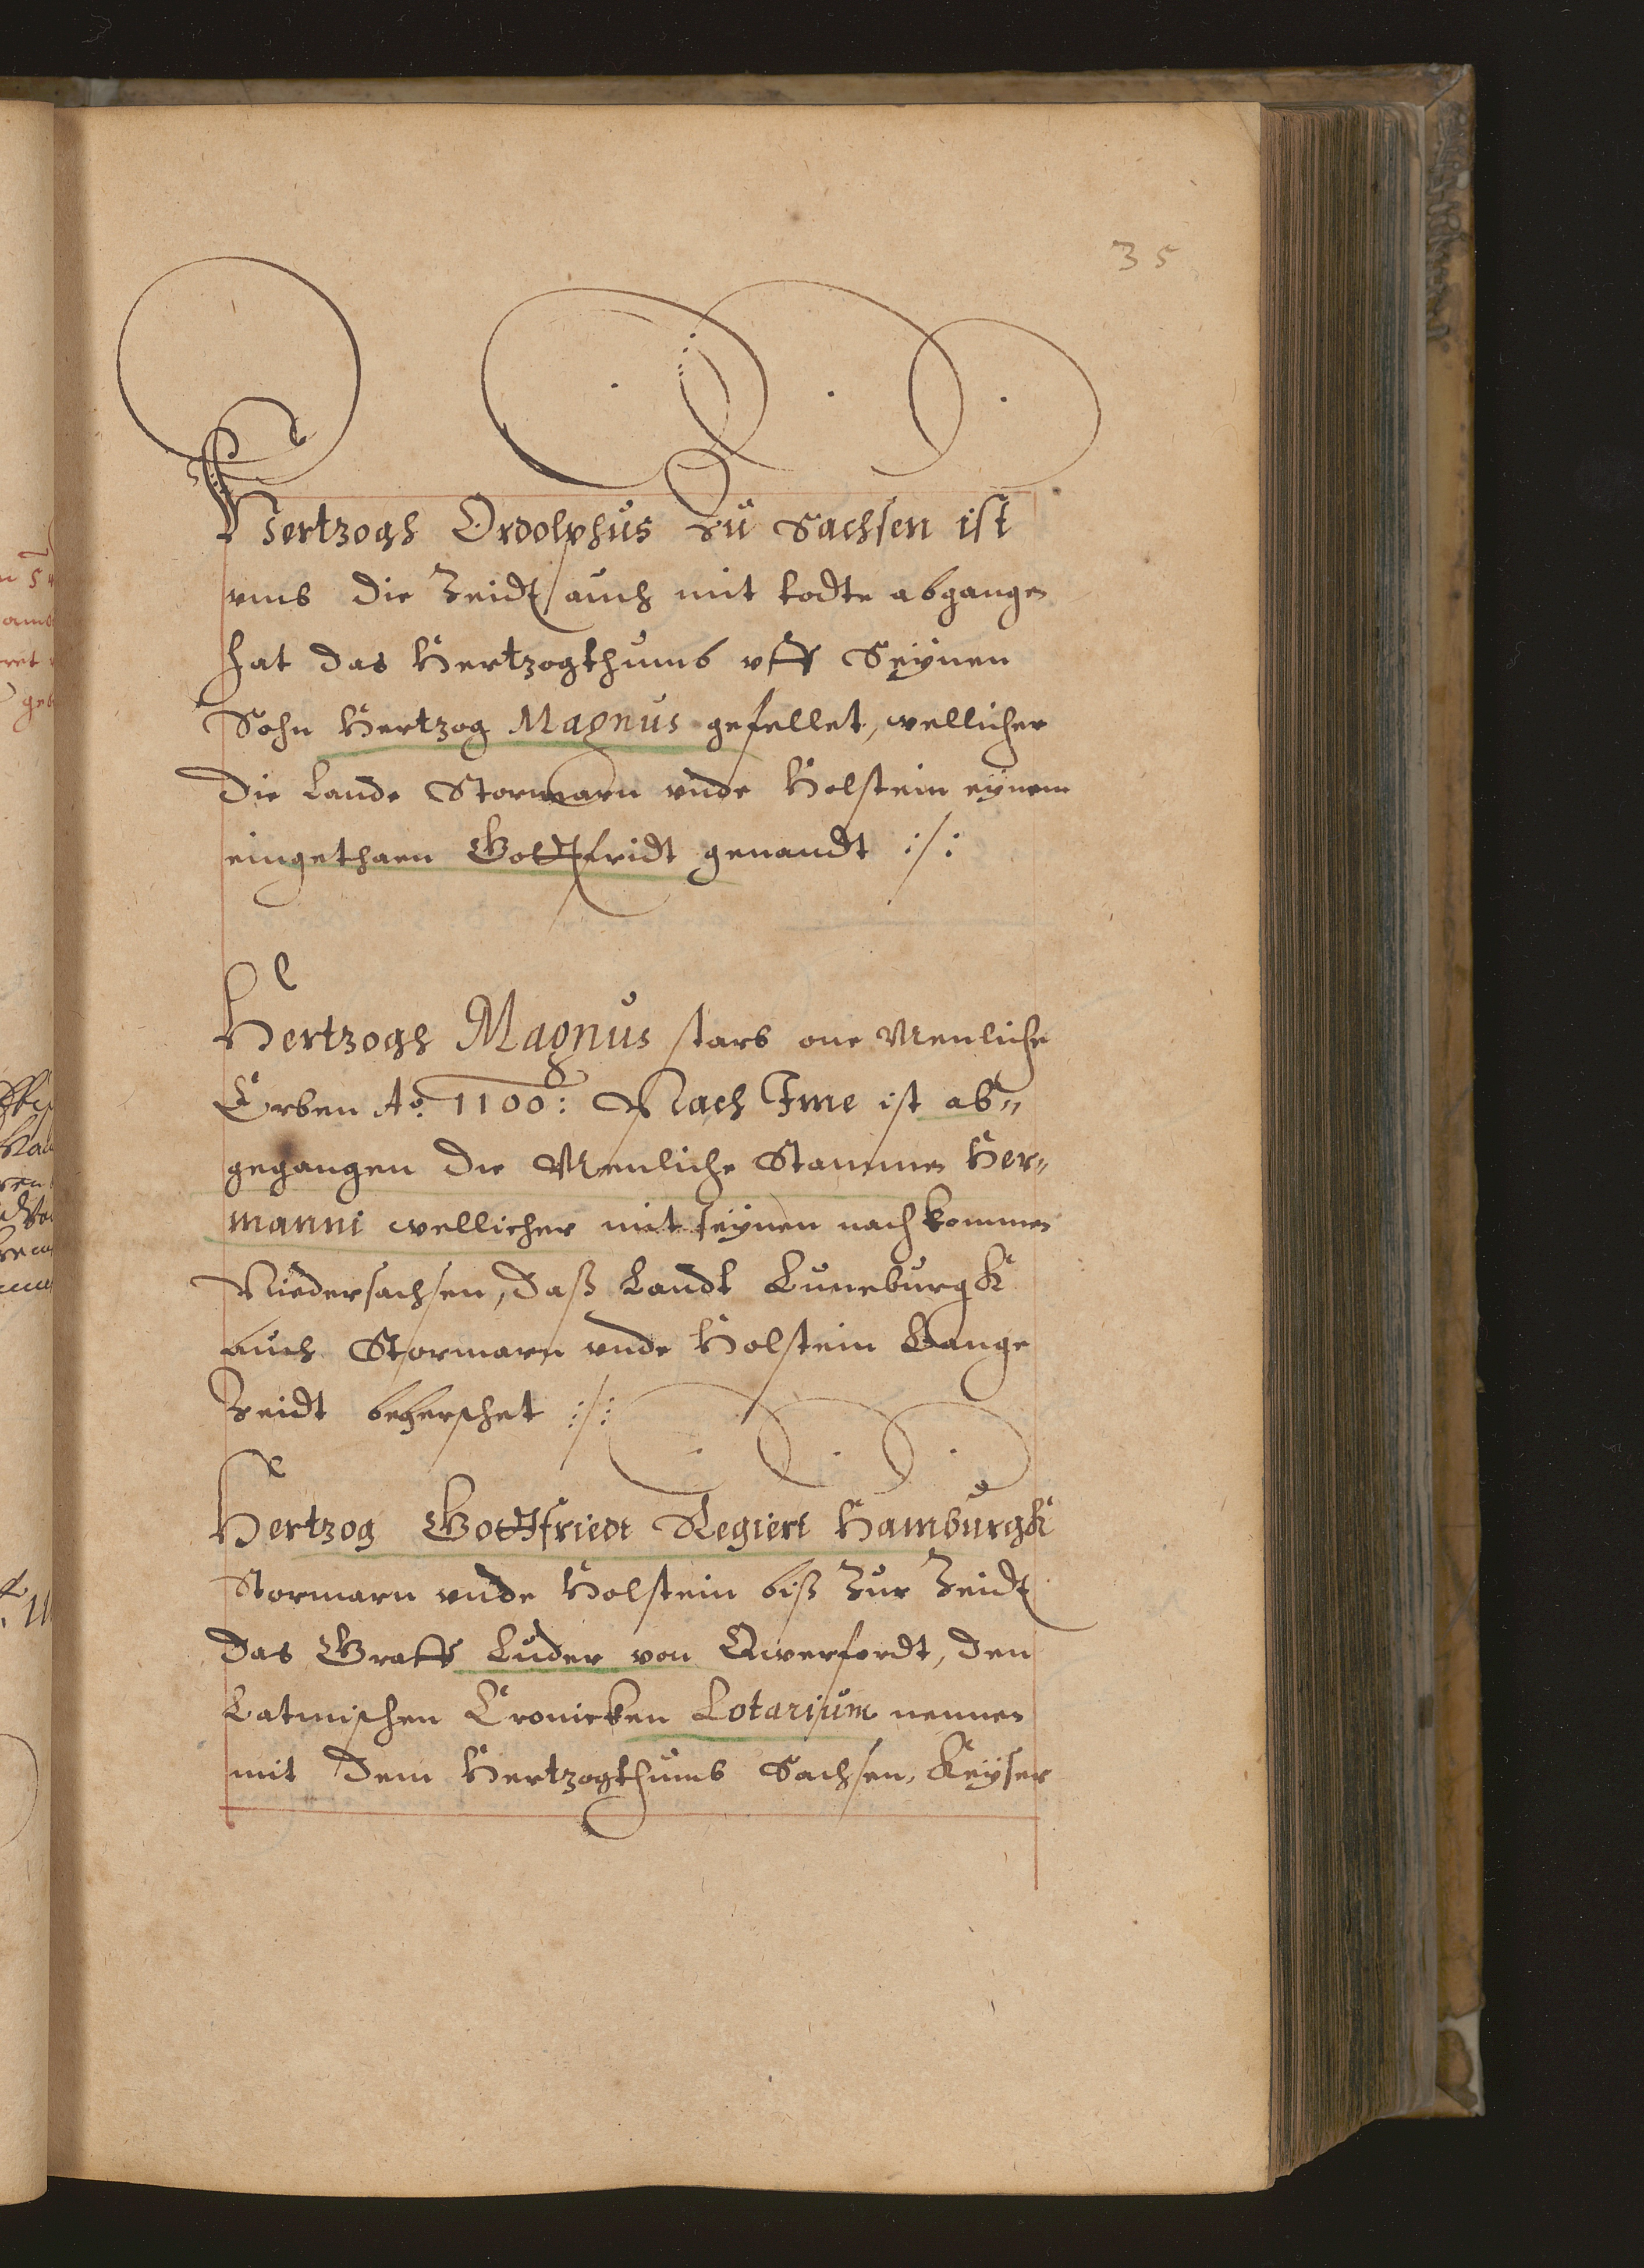 35
Hertzogh Ordolphus zu Sachsen ist
umb die Zeidt auch mit todte abgangen
hat das Hertzogthumb uff Seynen
Sohn Hertzog Magnus gefellet, wellicher
die Lande Stormarn unde Holstein eynem
eingethaen Gottfridt genandt :/:
Hertzogh Magnus starb one Menliche
Erben Ao. 1100: Nach Ime ist ab„
gegangen die Menliche Stamme Her„
manni wellicher mit seynen nachkommen
Niedersachsen, Daß Landt Luneburgk
auch Stormarn unde Holstein Lange
Zeidt beherschet :/:
Hertzog Gottfriedt Regiert Hamburgk
Stormarn unde Holstein biß Zur Zeidt
das Graff Luder von Qwerfordt, den
Latinischen Cronicken Lotarium nennen
mit dem Hertzogthumb Sachsen, Keyser